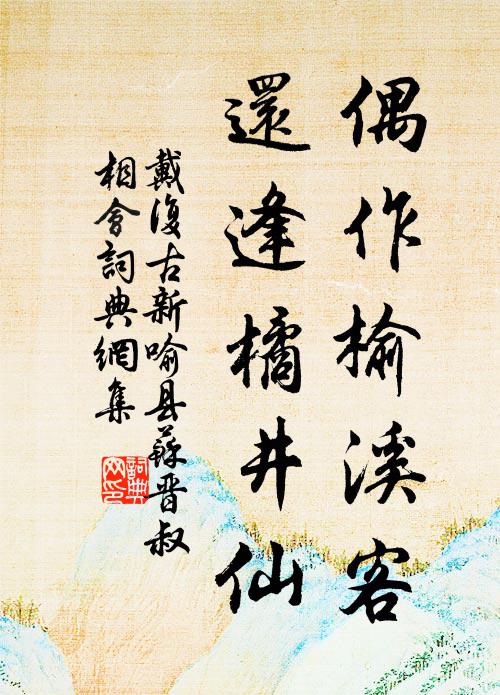 偶作榆溪客
還逢橘井仙
戴復古新喻县蘇晋叔
相會詞典網集
詞典網印